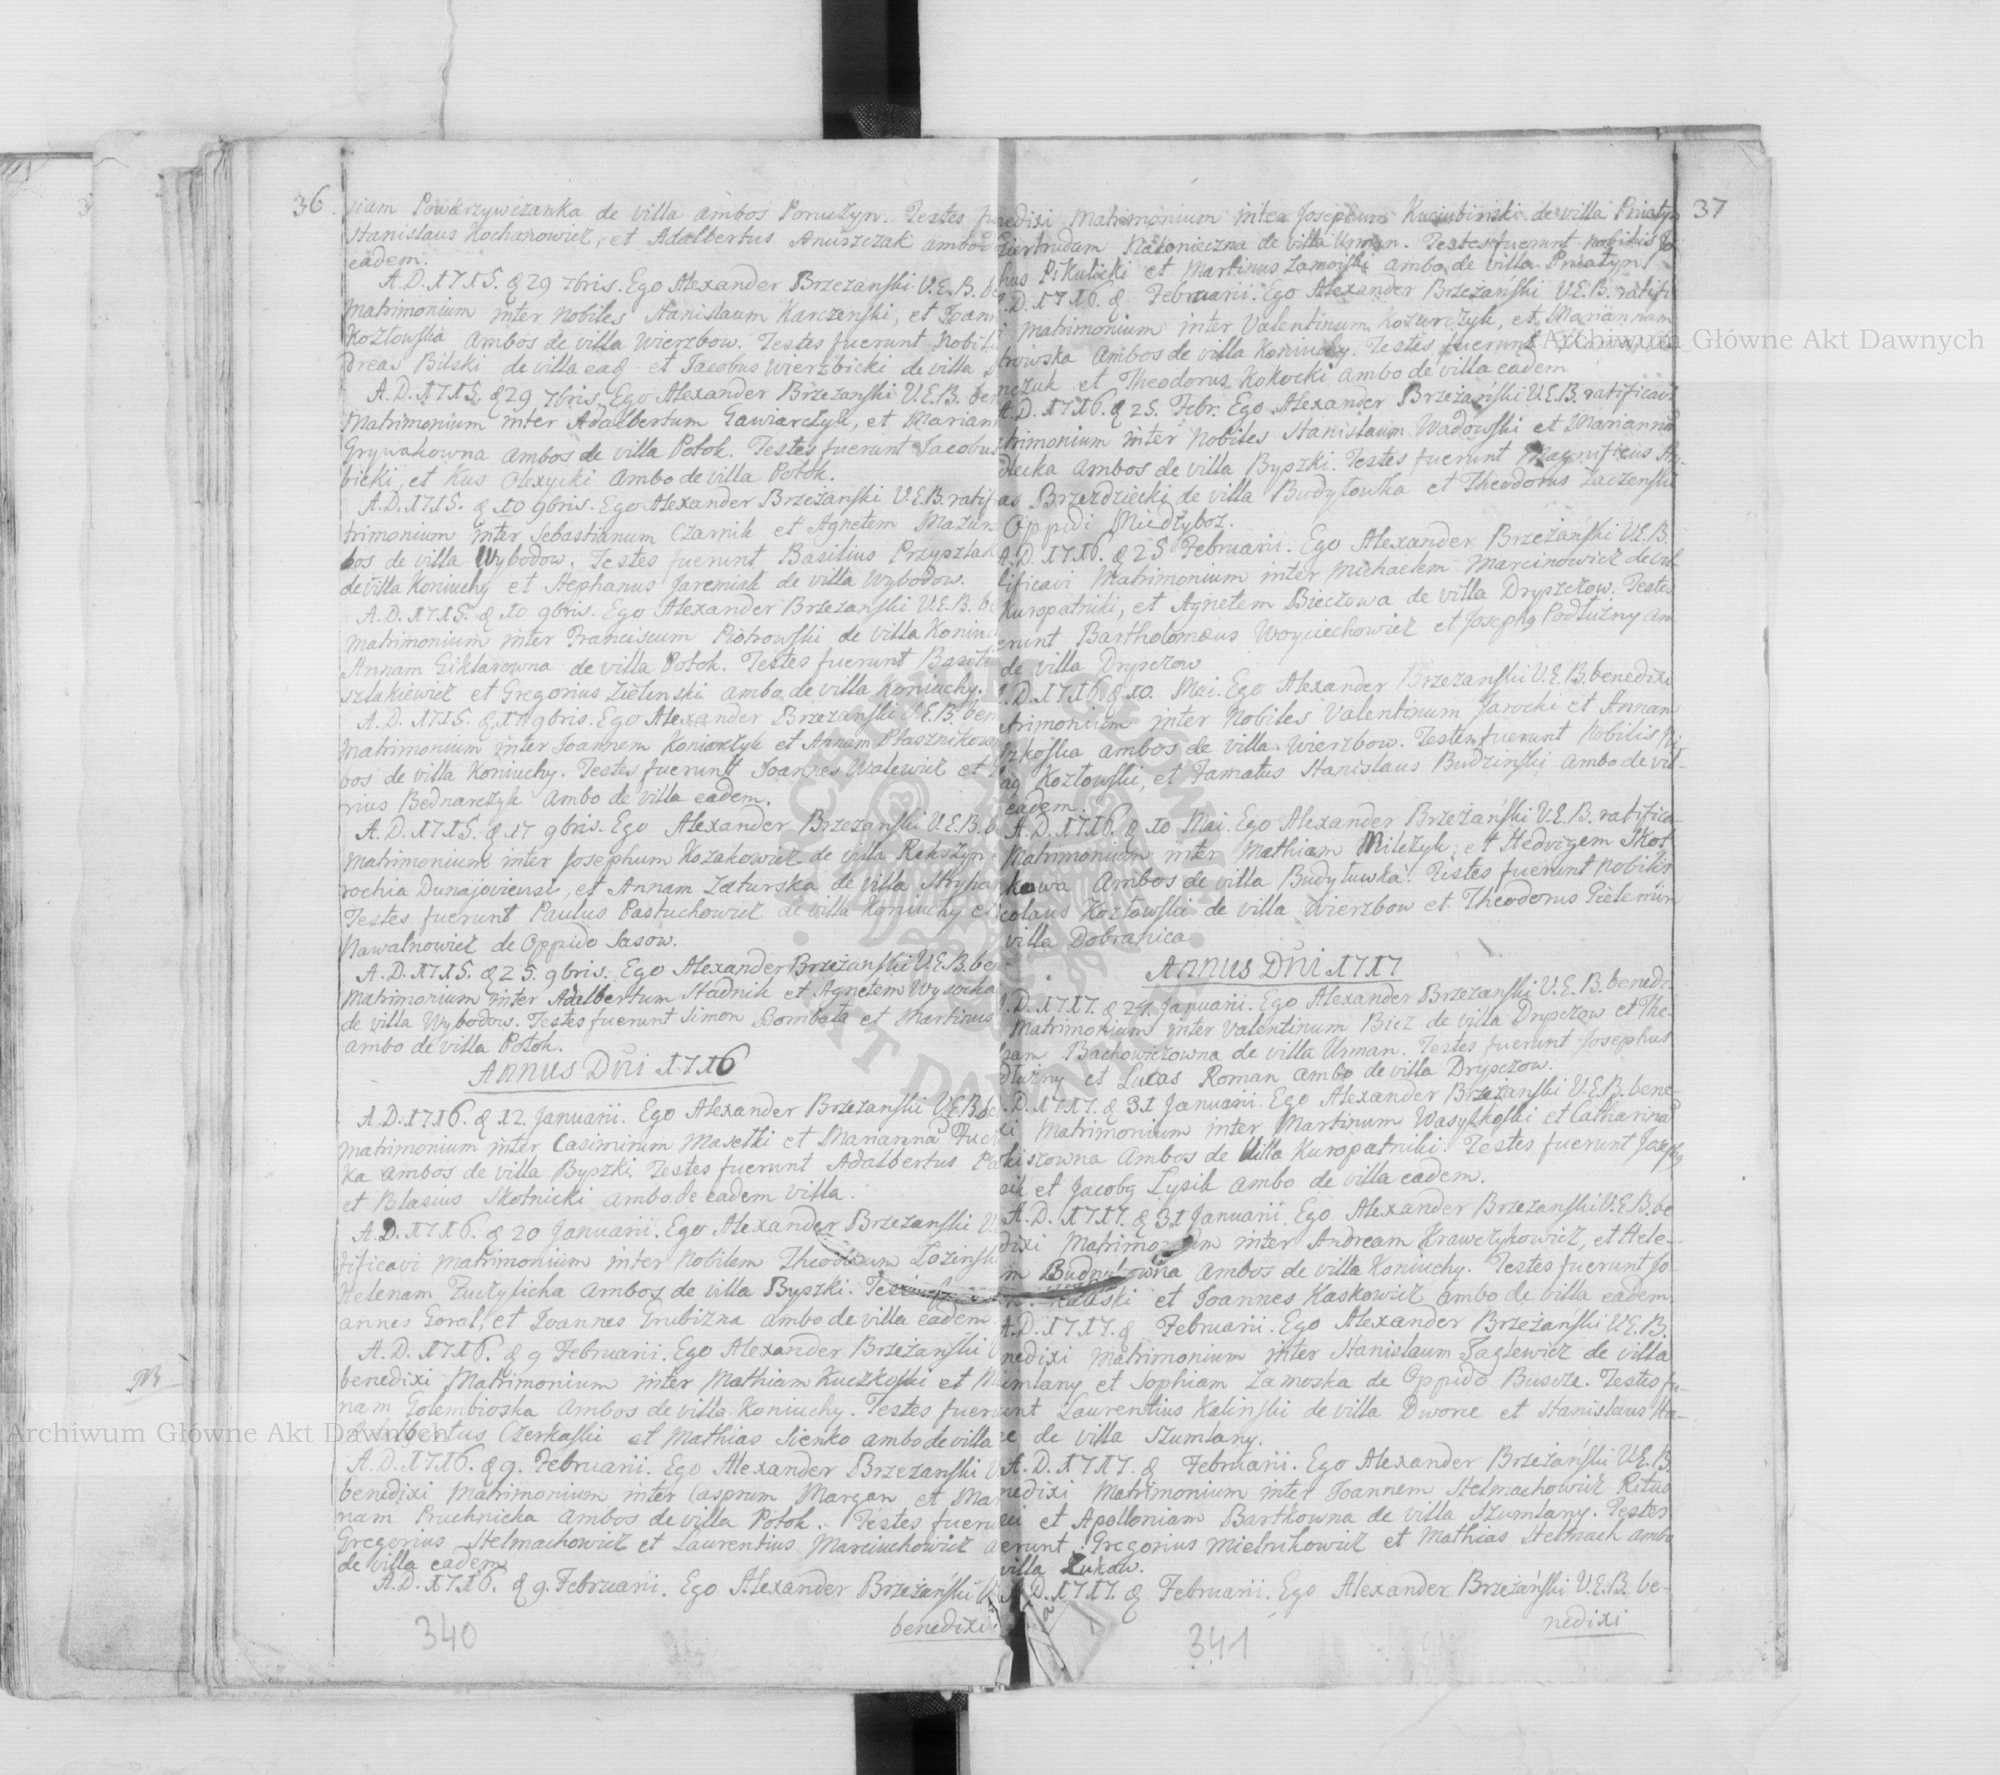 36
Powarzywczanka de villa ambos Poruczyn. Testes
Stanislaus Kochanowicz, et Adalbertus Anuszczak ambo
eadem.
A.D. 1715. d 29 7bris. Ego Alexander Brzeżański V.E.B. be
Matrimonium inter Nobiles Stanislaum Karczenski, et Joan
Kozłowska Ambos de villa Wierzbow. Testes fuerunt Nobili
dreas Bilski de villa ead et Jacobus Wierzbicki de villa
A.D. 1715, d 29 7bris. Ego Alexander Brzeżański V.E.B. ben
Matrimonium inter Adalbertum Gawiarczyk, et Mariam
Grywakowna ambos de villa Potok. Testes fuerunt Jacobus
bicki, et Kus Olexycki Ambo de villa Potok.
A.D. 1715. d 10 9bris. Ego Alexander Brzeżański V.E.B. ratif
trimonium inter Sebastianum Czarnik et Agnetem Mazur
bos de villa Wybodow. Testes fuerunt Basilius Przyszlak
de villa Koniuchy et Stephanus Jaremiak de villa Wybodow.
A.D. 1715. d 10 9bris. Ego Alexander Brzeżański V.E.B. be
Matrimonium inter Franciscum Piotrowski de villa Koniuc
Annam Giktarowna de villa Potok. Testes fuerunt Basiliu
szlakiewicz et Gregorius Zielinski ambo de villa Koniuchy.
A.D. 1715. d 17 9bris. Ego Alexander Brzeżański V.E.B. ben
Matrimonium inter Joannem Koniarczyk et Annam Ptasznikow
bos de villa Koniuchy. Testes fuerunt Joannes Walewicz et
rius Bednarczyk Ambo de villa eadem.
A.D. 1715. d 17 9bris. Ego Alexander Brzeżański V.E.B. b
Matrimonium inter Josephum Kozakowicz de villa Rekszyn
rochia Dunajoviensi, et Annam Zaturska de villa
Testes fuerunt Paulus Pastuchowicz de villa Koniuchy et
Nawalnowicz de Oppido Sasow.
A.D. 1715. d 25 9bris. Ego Alexander Brzeżański V.E.B. be
Matrimonium inter Adalbertum Stadnik et Agnetem Wysocka
de villa Wybodow. Testes fuerunt Simon Bombata et Martinus
ambo de villa Potok.
Annus Dni 1716
A.D. 1716. d 12 Januarii. Ego Alexander Brzeżański V.E.B be
matrimonium inter Casimirum Masetki et Marianna
ka ambos de villa Byszki. Testes fuerunt Adalbertus
et Blasius Skotnicki ambo de eadem villa.
A.D. 1716. d 20 Januarii. Ego Alexander Brzeżański V.
tificavi matrimonium inter Nobilem Theodorum Lozinsk
Helenam Zuczylicka ambos de villa Byszki.
annes Goral, et Joannes Grubizna ambo de villa eadem
A.D. 1716. d 9 Februarii. Ego Alexander Brzeżański V
benedixi Matrimonium inter Mathiam Kuczkoski et M
nam Golembioska Ambos de villa Koniuchy. Testes fuer
Adalbertus Czerkaski et Mathias Sienko ambo de villa
A.D. 1716. d 9. Februarii. Ego Alexander Brzeżański V
benedixi Matrimonium inter Casprum Margan et Mar
nam Pruchnicka ambos de villa Potok. Testes fueru
Gregorius Stelmachowicz et Laurentius Marciuchowicz a
de villa eadem
A.D. 1716. d 9. Februarii. Ego Alexander Brzeżański V
benedixi
340
37
nedixi Matrimonium inter Josephum Kuciubinski de villa Pniatyn
Giertrudam Nakonieczna de villa Urman. Testes fuerunt nobilis
hus Pikulicki et Martinus Zamoiski ambo de villa Pniatyn
A.D. 1716. d Februarii. Ego Alexander Brzeżański V.E.B. ratifi
Matrimonium inter Valentinum Kozurczyk, et Mariannam
trowska Ambos de villa Koniuchy. Testes fuerunt
nczuk et Theodorus Kokocki ambo de villa eadem
A.D. 1716. d 25. Febr. Ego Alexander Brzeżański V.E.B. ratificavi
trimonium inter Nobiles Stanislaum Wadowski et Mariannam
decka ambos de villa Byszki. Testes fuerunt Magnificus
as Brzezdziecki de villa Budyłowka et Theodorus Zaczenski
Oppidi Miedzyboz.
A.D. 1716. d 25 Februarii. Ego Alexander Brzeżański V.E.B.
tificavi Matrimonium inter Michaelem Marcinowicz de vil
Kuropatniki, et Agnetem Bieczowa de villa Dryszczow. Testes
erunt Bartholomæus Woyciechowicz et Josephg Podłuzny am
de villa Dryszczow
A.D. 1716 d 10. Mai. Ego Alexander Brzeżański V.E.B. benedixi
trimonium inter Nobiles Valentinum Jarocki et Annam
szkoska ambos de villa Wierzbow. Testes fuerunt Nobilis Ni
lag Kozłowski, et Famatus Stanislaus Budzinski Ambo de vil-
eadem.
A.D. 1716. d 10 Mai. Ego Alexander Brzeżański V.E.B. ratifica-
Matrimonium inter Mathiam Milczyk, et Hedvigem Skot
kowa Ambos de villa Budyłuwka. Testes fuerunt Nobilis
colaus Kozłowski de villa Wierzbow et Theodorus
villa Dobranica
Annus Dni 1717
A.D. 1717. d 24. Januarii. Ego Alexander Brzeżański V.E.B. benedi-
Matrimonium inter Valentinum Biez de villa Dryszczow et The-
sam Bachowiczowna de villa Urman. Testes fuerunt Josephus
dłuzny et Lucas Roman ambo de villa Dryszczow.
A.D. 1717. d 31 Januarii. Ego Alexander Brzeżański V.E.B. bene-
xi Matrimonium inter Martinum Wasylkoski et Catharinam
kiszowna Ambos de Villa Kuropatniki. Testes fuerunt Josephg
sik et Jacobg Lysik ambo de villa eadem.
A.D. 1717. d 31 Januarii. Ego Alexander Brzeżański V.E.B. be
dixi Matrimonium inter Andream Krawczykowicz, et Hele-
m ambos de villa Koniuchy. Testes fuerunt Jo-
et Joannes Kaskowicz ambo de villa eadem.
A.D. 1717. d Februarii. Ego Alexander Brzeżański V.E.B.
nedixi Matrimonium inter Stanislaum Faglewicz de villa
umlany et Sophiam Zamoska de Oppido Buscze. Testes fu-
runt Laurentius Kalinski de villa Dworce et Stanislaus
de villa Szumlany.
A.D. 1717. d Februarii. Ego Alexander Brzeżański V.E.B.
nedixi Matrimonium inter Joannem Stelmachowicz Ritus
et Apolloniam Bartkowna de villa Szumlany. Testes
erunt Gregorius Mielnikowicz et Mathias Stelmach ambo
villa Zukow.
A.D. 1717. d Februarii. Ego Alexander Brzeżański V.E.B. be-
nedixi
341
Archiwum Główne Akt Dawnych
Archiwum Główne Akt Dawnych